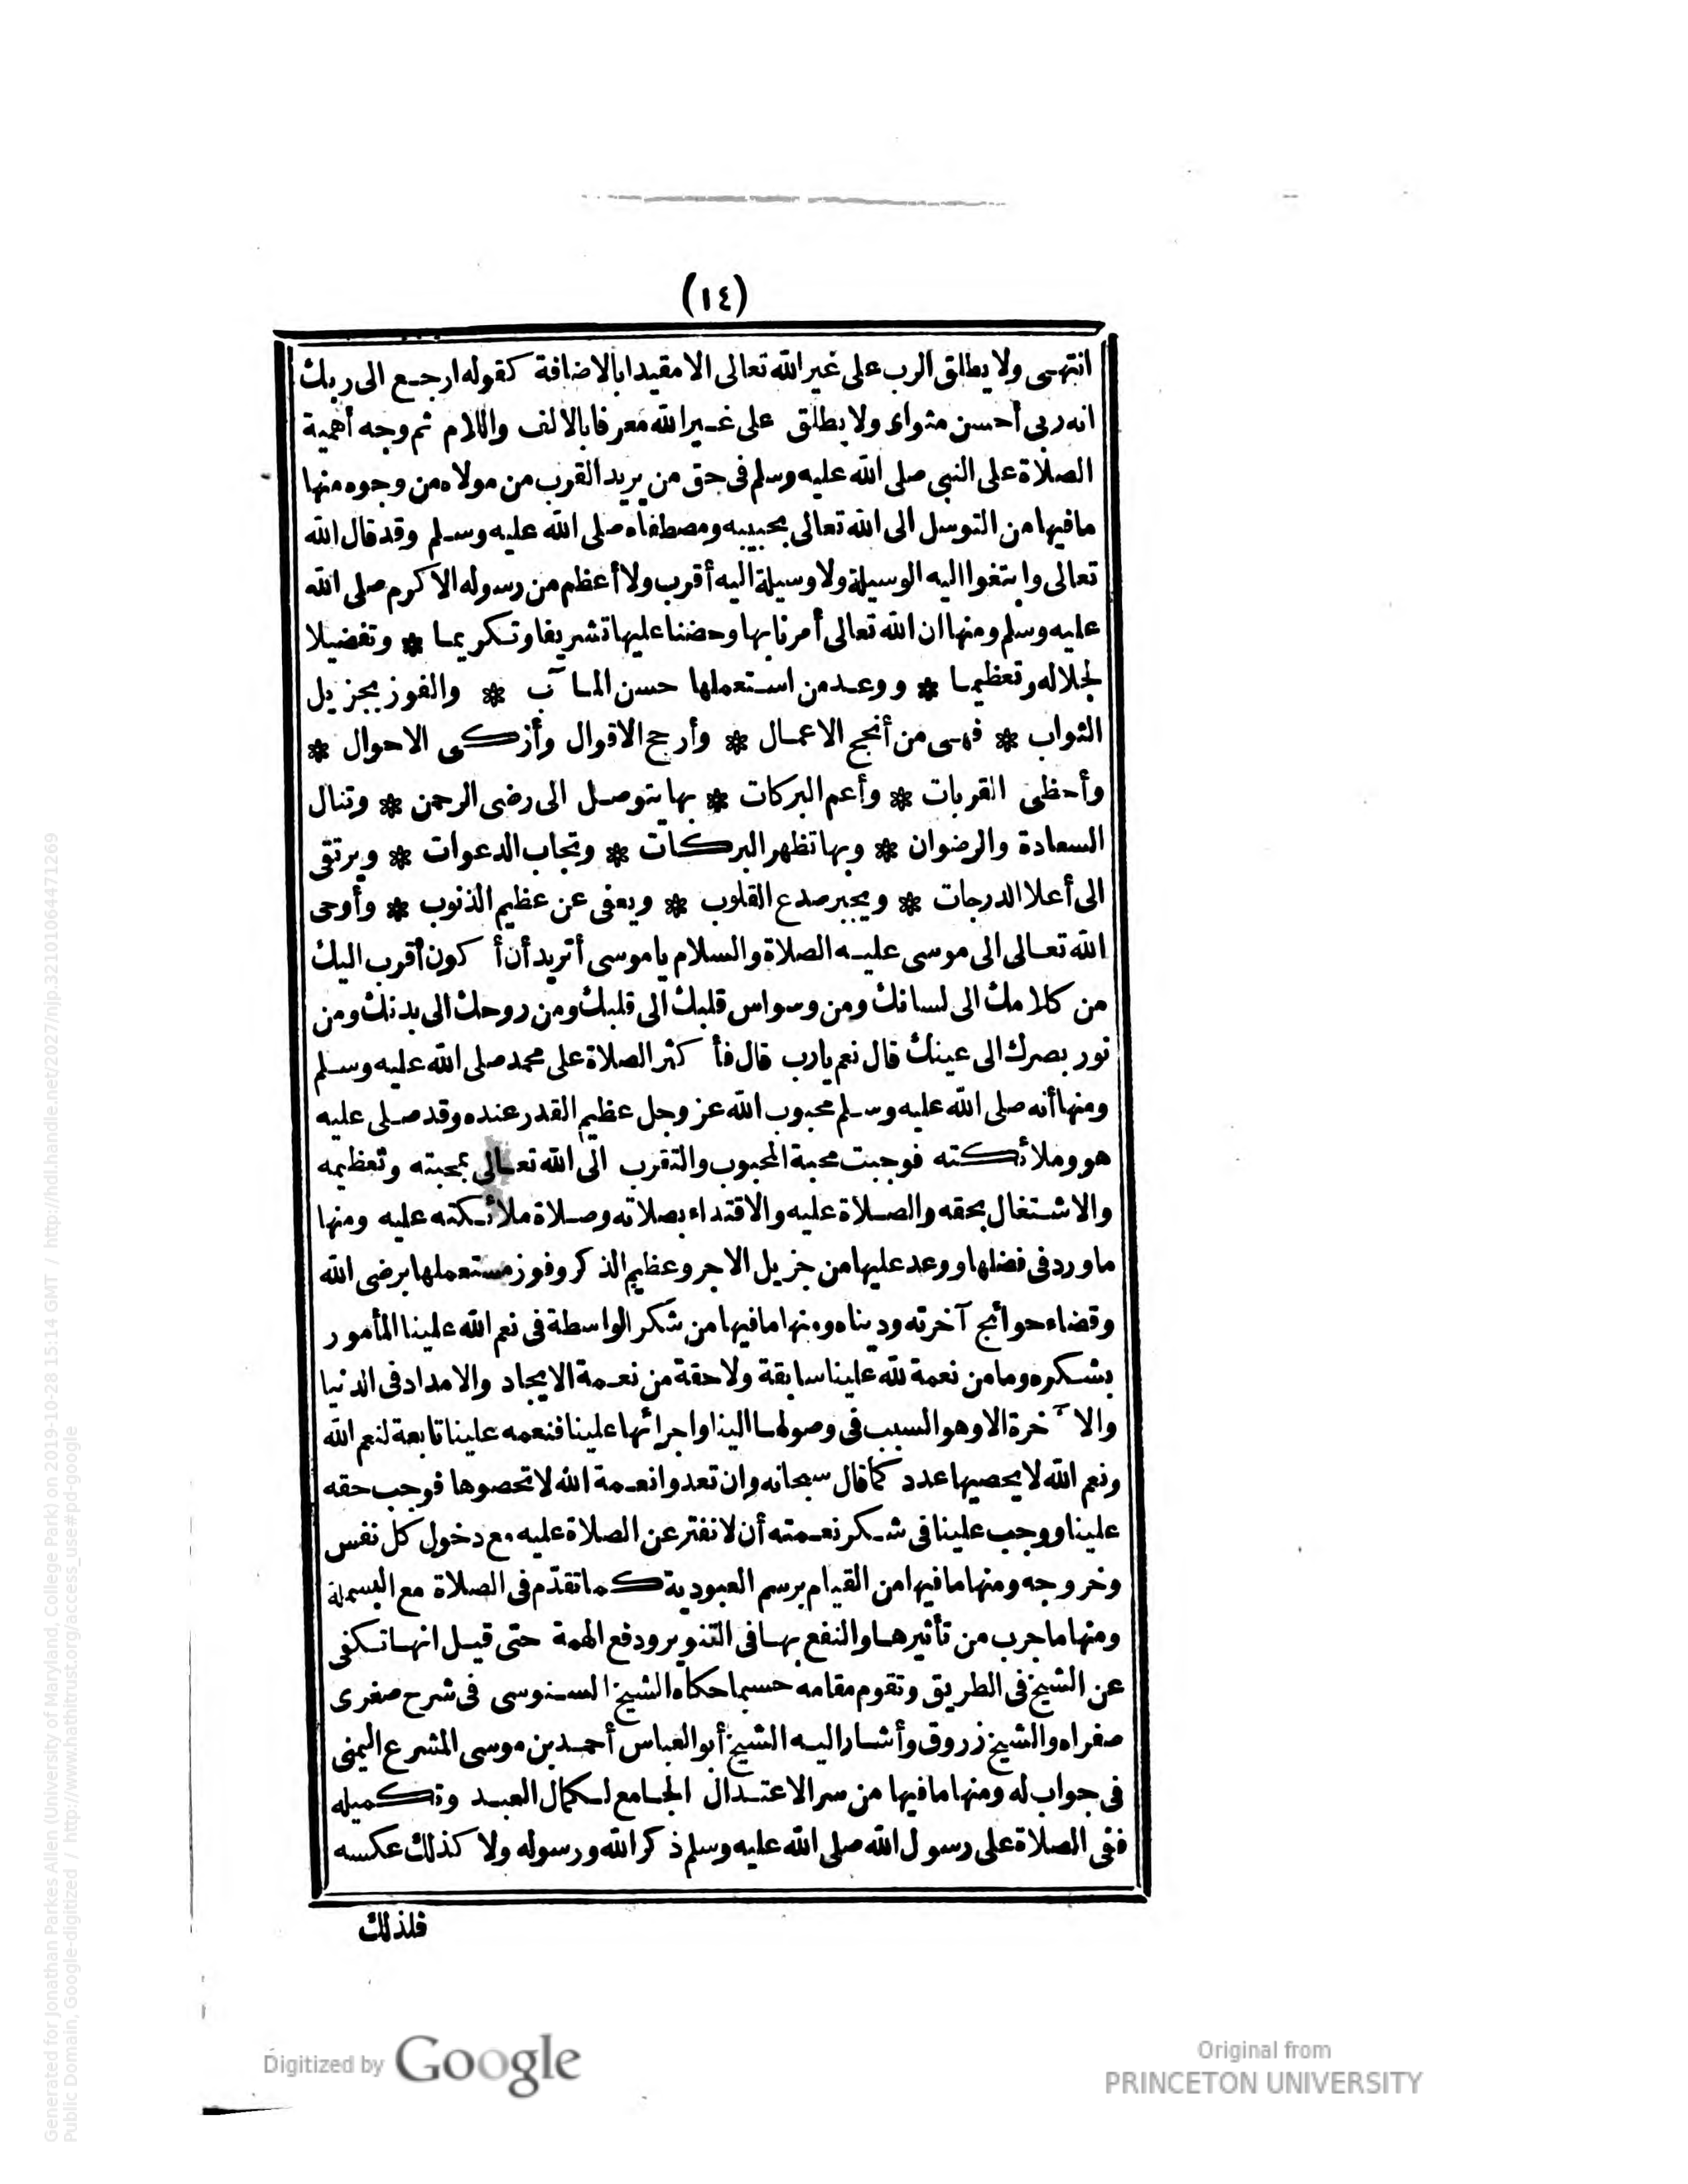 (١٤)
انتهى ولا يطلق الرب على غير الله تعالى الا مقيدا بالاضافة كقوله ارجع الى ربك
انه ربى أحسن مثواى ولا يطلق على غير الله معرفا بالالف واللام ثم وجه أهمية
الصلاة على النبى صلى الله عليه وسلم فى حق من يريد القرب من مولاه من وجوه منها
مافيها من التوسل الى الله تعالى بحبيبه ومصطفاه صلى الله عليه وسلم وقد قال الله
تعالى وابتغوا اليه الوسيلة ولا وسيلة اليه أقرب ولا أعظم من رسوله الاكرم صلى الله
عليه وسلم ومنها ان الله تعالى أمرنا بها وحضنا عليها تشريفا وتكريما * وتفضيلا
لجلاله وتعظيما * ووعد من استعملها حسن المآب * والفوز بجزيل
الثواب * فهى من أنجح الاعمال * وأرجح الاقوال وأزكى الاحوال *
وأحظى القربات * وأعم البركات * بها يتوصل الى رضى الرحمن * وتنال
السعادة والرضوان * وبها تظهر البركات * وتجاب الدعوات * ويرتقى
الى أعلا الدرجات * ويجبر صدع القلوب * ويعفى عن عظيم الذنوب * وأوحى
الله تعالى الى موسى عليه الصلاة والسلام ياموسى أتريد أن أكون أقرب اليك
من كلامك الى لسانك ومن وسواس قلبك الى قلبك ومن روحك الى بدنك ومن
نور بصرك الى عينك قال نعم يارب قال فأكثر الصلاة على محمد صلى الله عليه وسلم
ومنها أنه صلى الله عليه وسلم محبوب الله عز وجل عظيم القدر عنده وقد صلى عليه
هو وملائكته فوجبت محبة المحبوب والتقرب الى الله تعالى بمحبته وتعظيمه
والاشتغال بحقه والصلاة عليه والاقتداء بصلاته وصلاة ملائكته عليه ومنها
ماورد فى فضلها ووعد عليها من جزيل الاجر وعظيم الذكر وفوز مستعملها برضى الله
وقضاء حوائج آخرته ودنياه ومنها مافيها من شكر الواسطة فى نعم الله علينا المأمور
بشكره وما من نعمة لله علينا سابقة ولاحقة من نعمة الايجاد والامداد فى الدنيا
والآخرة الا وهو السبب فى وصولها الينا واجرائها علينا فنعمه علينا تابعة لنعم الله
ونعم الله لا يحصيها عدد كما قال سبحانه وان تعدوا نعمة الله لا تحصوها فوجب حقه
علينا ووجب علينا فى شكر نعمته أن لا نفتر عن الصلاة عليه مع دخول كل نفس
وخروجه ومنها مافيها من القيام برسم العبودية كما تقدّم فى الصلاة مع البسملة
ومنها ماجرب من تأثيرها والنفع بها فى التنوير ودفع الهمة حتى قيل انها تكفى
عن الشيخ فى الطريق وتقوم مقامه حسبما حكاه الشيخ السنوسى فى شرح صغرى
صغراه والشيخ زروق وأشار اليه الشيخ أبو العباس أحمد بن موسى المشرع اليمنى
فى جواب له ومنها مافيها من سر الاعتدال الجامع لكمال العبد وتكميله
ففى الصلاة على رسول الله صلى الله عليه وسلم ذكر الله ورسوله ولا كذلك عكسه
فلذلك
Digitized by Google
Original from
PRINCETON UNIVERSITY
Generated for Jonathan Parkes Allen (University of Maryland, College Park) on 2019-10-28 15:14 GMT / http://hdl.handle.net/2027/njp.32101064471269
Public Domain, Google-digitized / http://www.hathitrust.org/access_use#pd-google